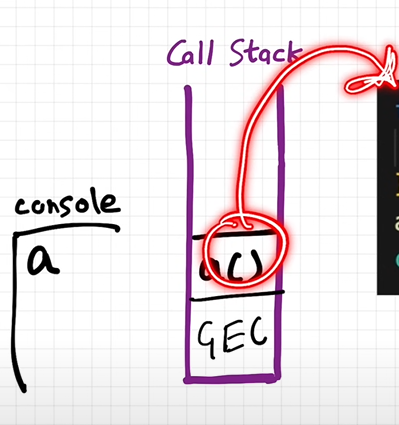 Call Stack
console
a
a()
GEC